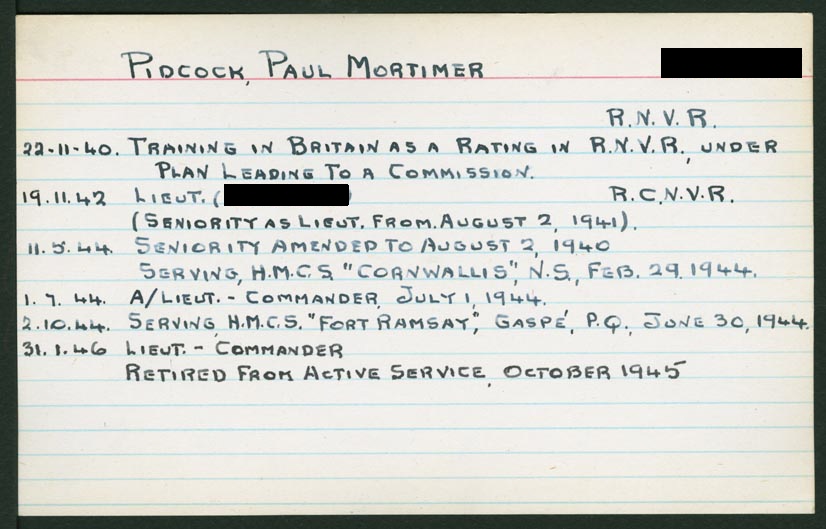 PIDCOCK, PAUL MORTIMER
R.N.V.R.
22-11-40. TRAINING IN BRITAIN AS A RATING IN R.N.V.R., UNDER
PLAN LEADING TO A COMMISSION.
19.11.42 LIEUT. ( ) R.C.N.V.R.
(SENIORITY AS LIEUT. FROM AUGUST 2, 1941).
11.5.44. SENIORITY AMENDED TO AUGUST 2, 1940
SERVING, H.M.C.S. "CORNWALLIS", N.S., FEB. 29, 1944.
1.7.44. A/LIEUT.-COMMANDER, JULY 1, 1944.
2.10.44. SERVING, H.M.C.S. "FORT RAMSAY", GASPÉ, P.Q., JUNE 30, 1944.
31.1.46 LIEUT.-COMMANDER
RETIRED FROM ACTIVE SERVICE, OCTOBER 1945